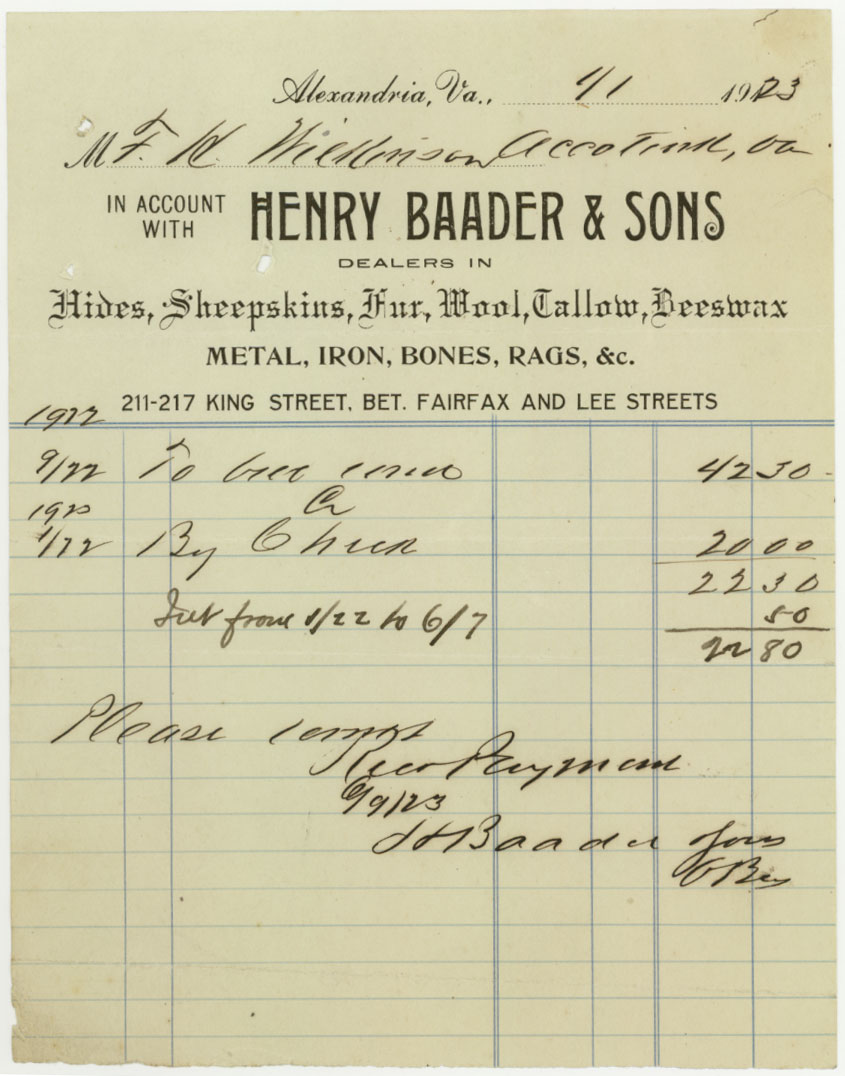 Alexandria, Va., 4/1 1923
M F. K. Wilkinson Accotink, Va
IN ACCOUNT WITH HENRY BAADER & SONS
DEALERS IN
Hides, Sheepskins, Fur, Wool, Tallow, Beeswax
METAL, IRON, BONES, RAGS, &c.
211-217 KING STREET, BET. FAIRFAX AND LEE STREETS
1922
9/22 To bill 42 30
Cr
1/22 By Check 20 00
22 30
Int from 1/22 to 6/7 50
22 80
Please
Recd Payment
6/9/23
H Baader Sons